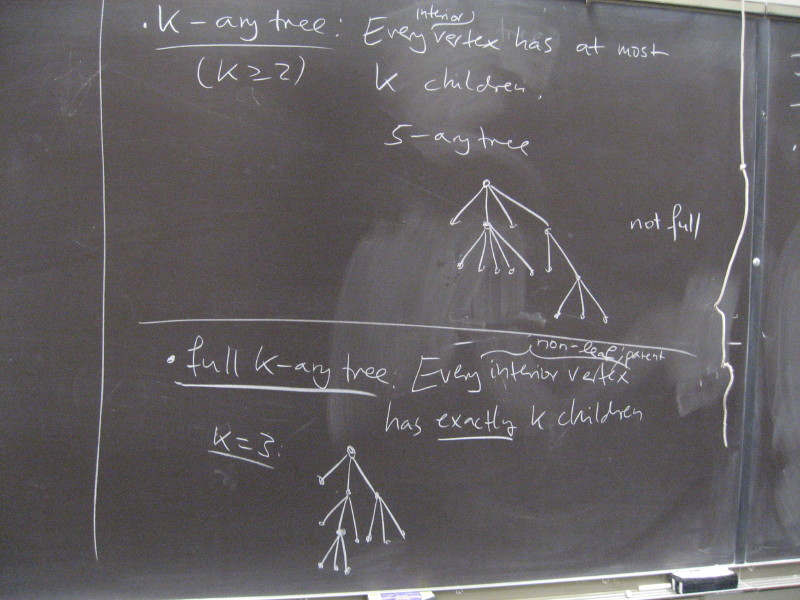 · K-ary tree: Every interior vertex has at most
(K≥2) K children.
5-ary tree
not full
non-leaf; parent
· full K-ary tree: Every interior vertex
has exactly k children
K=3: